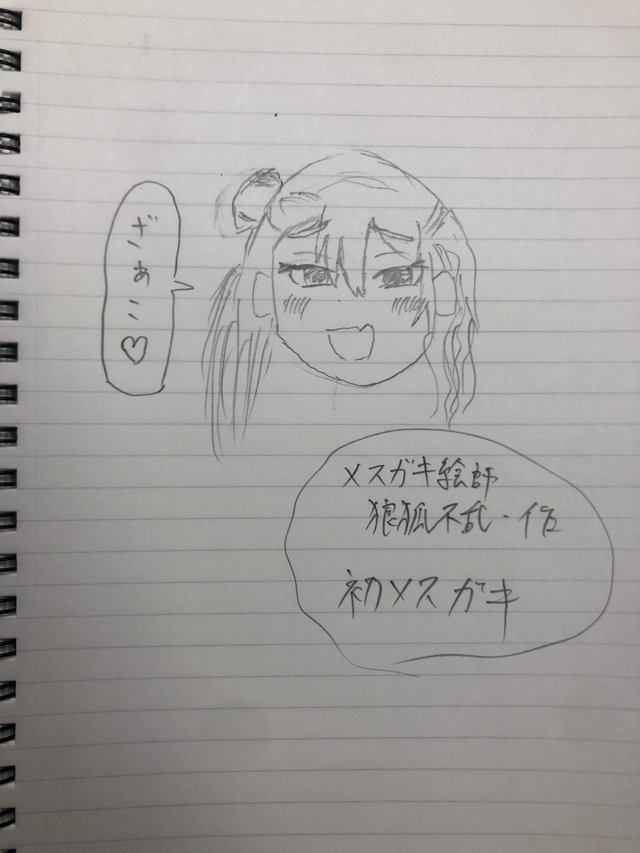 ざぁこ♡
メスガキ絵師
狼狐不乱・作
初メスガキ